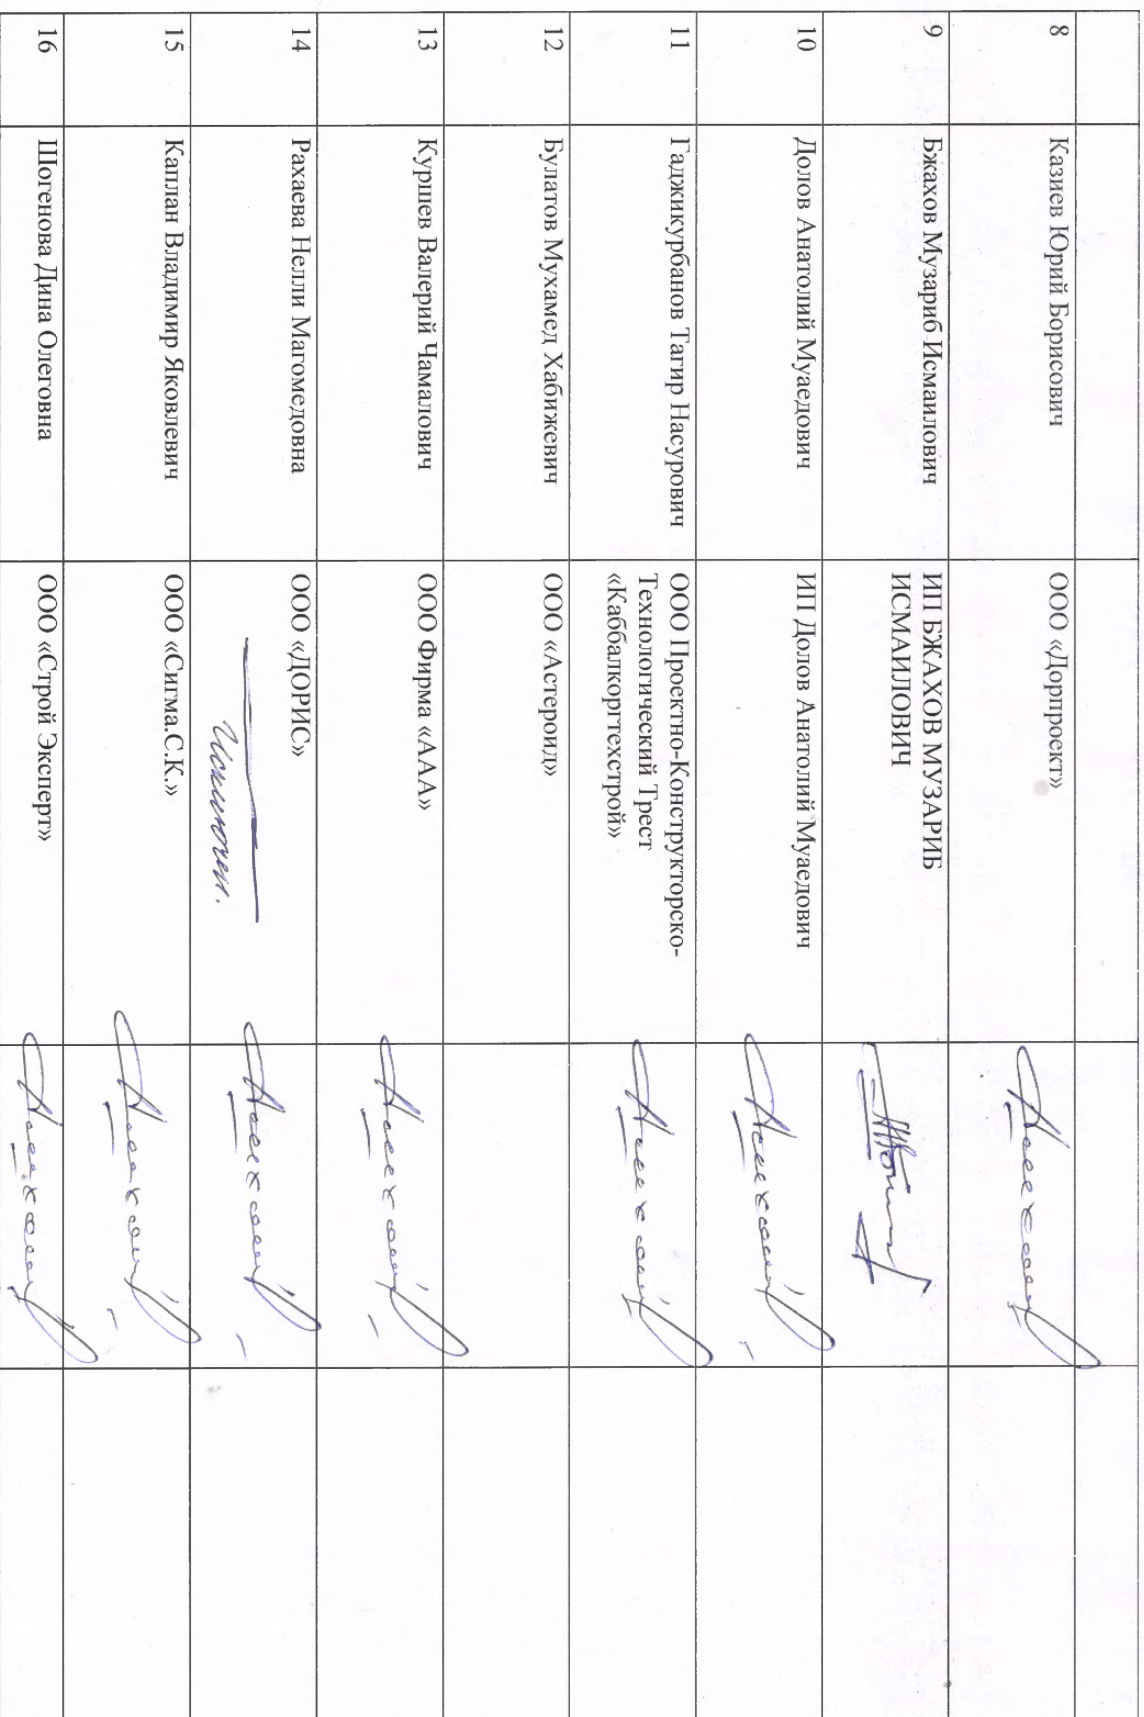 8 Казиев Юрий Борисович ООО «Дорпроект»
9 Бжахов Музариб Исмаилович ИП БЖАХОВ МУЗАРИБ
ИСМАИЛОВИЧ
10 Долов Анатолий Муаедович ИП Долов Анатолий Муаедович
11 Гаджикурбанов Тагир Насурович ООО Проектно-Конструкторско-
Технологический Трест
«Каббалкоргтехстрой»
12 Булатов Мухамед Хабижевич ООО «Астероид»
13 Куршев Валерий Чамалович ООО Фирма «ААА»
14 Рахаева Нелли Магомедовна ООО «ДОРИС»
Исключен.
15 Каплан Владимир Яковлевич ООО «Сигма.С.К.»
16 Шогенова Дина Олеговна ООО «Строй Эксперт»